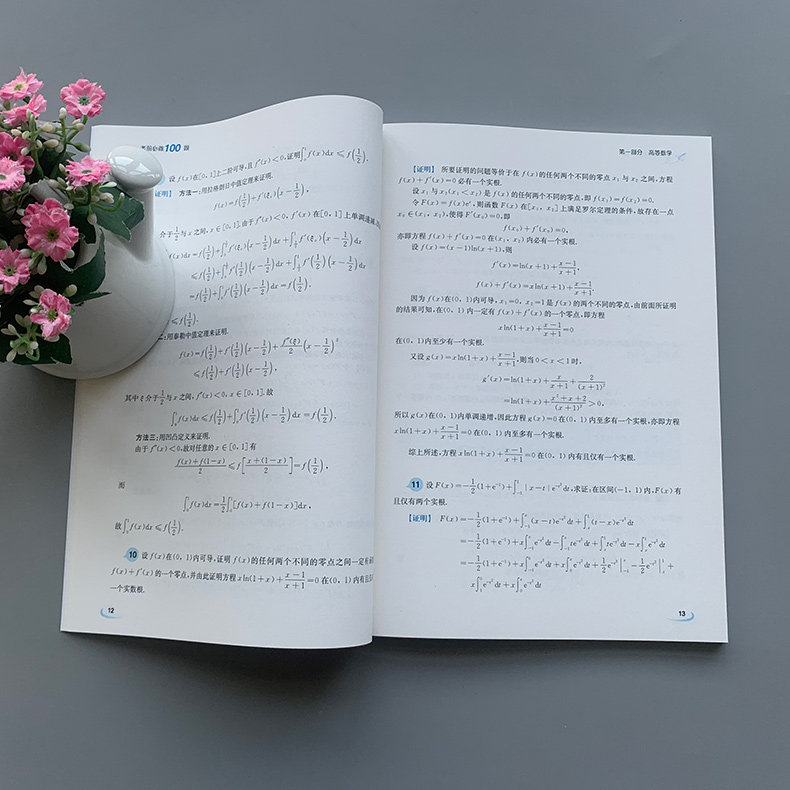 考前必做100题
设f(x)在[0,1]上二阶可导,且f″(x)<0,证明∫₀¹f(x)dx≤f(1/2).
证明】 方法一:用拉格朗日中值定理来证明.
f(x)=f(1/2)+f′(ξₓ)(x-1/2),
介于1/2与x之间,x∈[0,1].由于f″(x)<0,f′(x)在[0,1]上单调递减,
f(x)dx=f(1/2)+∫₀^{1/2}f′(ξₓ)(x-1/2)dx+∫_{1/2}^1 f′(ξₓ)(x-1/2)dx
≤f(1/2)+∫₀^{1/2}f′(1/2)(x-1/2)dx+∫_{1/2}^1 f′(1/2)(x-1/2)dx
=f(1/2)+∫₀¹f′(1/2)(x-1/2)dx=f(1/2).
≤f(1/2).
二:用泰勒中值定理来证明.
f(x)=f(1/2)+f′(1/2)(x-1/2)+f″(ξ)/2(x-1/2)²
≤f(1/2)+f′(1/2)(x-1/2),
其中ξ介于1/2与x之间,f″(x)<0,x∈[0,1].故
∫₀¹f(x)dx≤f(1/2)+∫₀¹f′(1/2)(x-1/2)dx=f(1/2).
方法三:用凹凸定义来证明.
由于f″(x)<0,故对任意的x∈[0,1]有
(f(x)+f(1-x))/2≤f[(x+(1-x))/2]=f(1/2),
而
∫₀¹f(x)dx=1/2∫₀¹[f(x)+f(1-x)]dx,
故∫₀¹f(x)dx≤f(1/2).
10 设f(x)在(0,1)内可导,证明f(x)的任何两个不同的零点之间一定有
f(x)+f′(x)的一个零点,并由此证明方程xln(1+x)+(x-1)/(x+1)=0在(0,1)内有且
一个实数根.
12
第一部分 高等数学
【证明】 所要证明的问题等价于在f(x)的任何两个不同的零点x₁与x₂之间,方程
f(x)+f′(x)=0必有一个实根.
设x₁与x₂(x₁<x₂)是f(x)的任何两个不同的零点,即f(x₁)=f(x₂)=0.
令F(x)=f(x)eˣ,则函数F(x)在[x₁,x₂]上满足罗尔定理的条件,故存在一点
x₀∈(x₁,x₂),使得F′(x₀)=0,即
f(x₀)+f′(x₀)=0,
亦即方程f(x)+f′(x)=0在(x₁,x₂)内必有一个实根.
设f(x)=(x-1)ln(x+1),则
f′(x)=ln(x+1)+(x-1)/(x+1),
f(x)+f′(x)=xln(x+1)+(x-1)/(x+1).
因为f(x)在(0,1)内可导,x₁=0,x₂=1是f(x)的两个不同的零点,由前面所证明
的结果可知,在(0,1)内一定有f(x)+f′(x)的一个零点,即方程
xln(1+x)+(x-1)/(x+1)=0
在(0,1)内至少有一个实根.
又设g(x)=xln(1+x)+(x-1)/(x+1),则当0<x<1时,
g′(x)=ln(1+x)+x/(x+1)+2/(x+1)²
=ln(1+x)+(x²+x+2)/(x+1)²>0,
所以g(x)在(0,1)内单调递增,因此方程g(x)=0在(0,1)内至多有一个实根,亦即方程
xln(1+x)+(x-1)/(x+1)=0在(0,1)内至多有一个实根.
综上所述,方程xln(1+x)+(x-1)/(x+1)=0在(0,1)内有且仅有一个实根.
11 设F(x)=-1/2(1+e⁻¹)+∫₋₁¹|x-t|e^{-t²}dt,求证:在区间(-1,1)内,F(x)有
且仅有两个实根.
【证明】 F(x)=-1/2(1+e⁻¹)+∫₋₁ˣ(x-t)e^{-t²}dt+∫ₓ¹(t-x)e^{-t²}dt
=-1/2(1+e⁻¹)+x∫₋₁ˣe^{-t²}dt-∫₋₁ˣte^{-t²}dt+∫ₓ¹te^{-t²}dt-x∫ₓ¹e^{-t²}dt
13